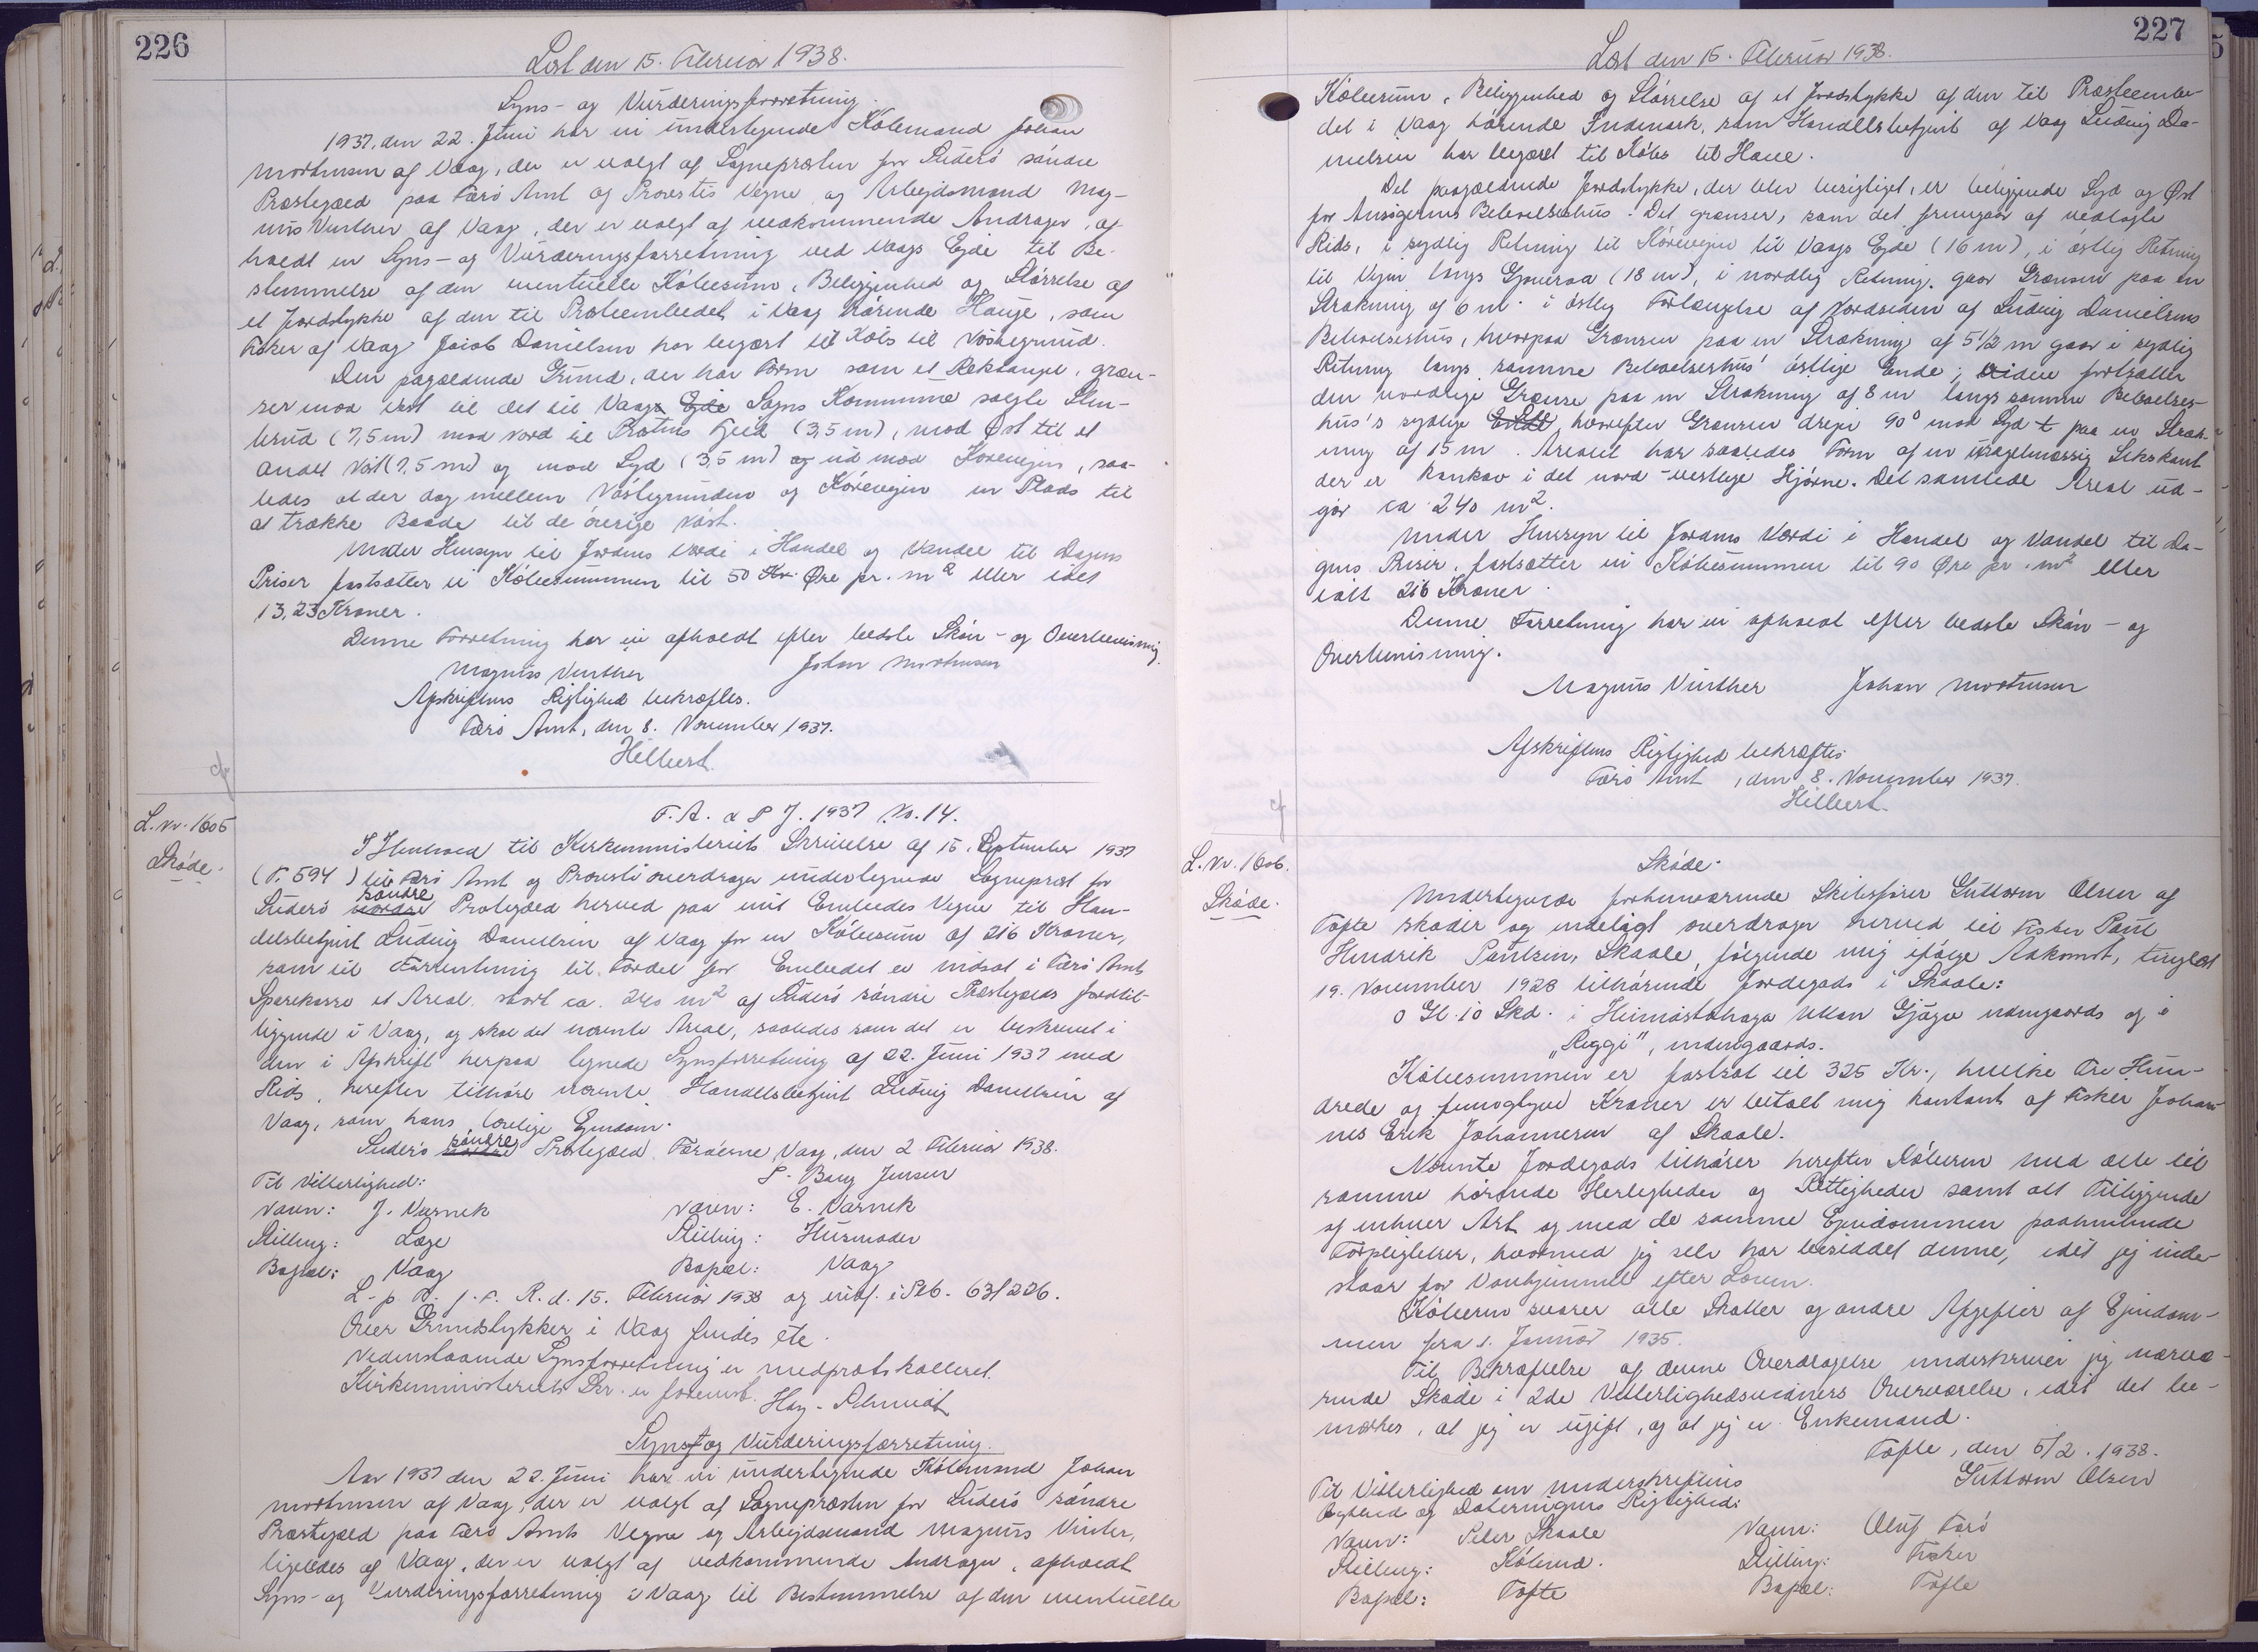 226
Læst den 15. Februar 1938.
Syns- og Vurderingsforretning.
1937, den 22. Juni har vi undertegnede Købmand Johan
Mortensen af Vaag, der er valgt af Sognepræsten for Suderø søndre
Præstegæld paa Færø Amt og Provstis Vegne og Arbejdsmand Mag-
nus Vinther af Vaag, der er valgt af vedkommende Andrager, af-
holdt en Syns- og Vurderingsforretning ved Vaags Ejde til Be-
stemmelse af den eventuelle Købesum, Beliggenhed og Størrelse af
et Jordstykke af den til Præsteembedet i Vaag hørende Hauge, som
Fisker af Vaag Jacob Danielsen har begært til Købs til Nøstegrund.
Den pagældende Grund, der har Form som et Rektangel, græn-
ser mod Vest til det til Vaags Ejde Sogns Kommune solgte Sten-
brud (7,5 m) mod Nord til Præstens Hjeld (3,5 m), mod Øst til et
andet Nøst (7,5 m) og mod Syd (3,5 m) og ud mod Kørevejen, saa-
ledes at der dog mellem Nøstegrunden og Køreveien er Plads til
at trække Baade til de øvrige Nøst.
Under Hensyn til Jordens Værdi i Handel og Vandel til Dagens
Priser fastsætter vi Købesummen til 50 Kr. Øre pr. m2 eller ialt
13,23 Kroner.
Denne Forretning har vi afholdt efter bedste Skøn- og Overbevisning.
Magnus Vinther Johan Mortensen
Afskriftens Rigtighed bekræftes.
Færø Amt, den 8. November 1937.
Hilbert.
cf
F. A. & P J. 1937 No. 14.
L. Nr. 1605
Skøde.
I Henhold til Kirkeministeriets Skrivelse af 15. September 1937
(F. 594) til Færø Amt og Provsti overdrager undertegnede Sognepræst for
søndre
Suderø nordre Præstegæld herved paa mit Embedes Vegne til Han-
delsbetjent Ludvig Danielsen af Vaag for en Købesum af 216 Kroner,
som til Forrentning til Fordel for Embedet er indsat i Færø Amts
Sparekasse et Areal stort ca. 240 m2 af Suderø søndre Præstegælds Jordtil-
liggende i Vaag, og skal det nævnte Areal, saaledes som det er beskrevet i
den i Afskrift herpaa tegnede Synsforretning af 22. Juni 1937 med
Rids, herefter tilhøre nævnte Handelsbetjent Ludvig Danielsen af
Vaag, som hans lovlige Ejendom.
søndre
Suderø nordre Præstegæld Færøerne, Vaag, den 2 Februar 1938.
Til Vitterlighed: P. Bang Jensen
Navn: J. Varnek Navn: E. Varnek
Stilling: Læge Stilling: Husmoder
Bopæl: Vaag Bopæl: Vaag
L- p D. f. F. R. d. 15. Februar 1938 og indf. i Ptb. 63/226.
Over Grundstykker i Vaag findes ete.
Vedenstaaende Synsforretning er medprotokolleret.
Kirkeministeriets Skr. er forevist. Hay-Schmidt
Syns- og Vurderingsforretning.
Aar 1937 den 22. Juni har vi undertegnede Købmand Johan
Mortensen af Vaag, der er valgt af Sognepræsten for Suderø søndre
Præstegæld paa Færø Amts Vegne og Arbejdsmand Magnus Vinter,
ligeledes af Vaag, der er valgt af vedkommende Andrager, afholdt
Syns- og Vurderingsforretning i Vaag til Bestemmelse af den eventuelle
227
Læst den 15. Februar 1938.
Købesum, Beliggenhed og Størrelse af et Jordstykke af den til Præsteembe-
det i Vaag hørende Indmark, som Handelsbetjent af Vaag Ludvig Da-
nielsen har begæret til Købs til Have.
Det paagældende Jordstykke, der blev besigtiget, er beliggende Syd og Øst
for Ansøgerens Beboelseshus. Det grænser, som det fremgaar af vedlagte
Rids, i sydlig Retning til Køreveien til Vaags Ejde (16 m), i østlig Retning
til Vejen langs Gjoueraa (18 m), i nordlig Retning gaar Grænsen paa en
Strækning af 6 m i østlig Forlængelse af Nordsiden af Ludvig Danielsens
Beboelseshus, hvorpaa Grænsen paa en Strækning af 5 1/2 m gaar i sydlig
Retning langs samme Beboelseshus' østlige Ende; videre fortsætter
den nordlige Grænse paa en Strækning af 8 m langs samme Beboelses-
hus's sydlige Ende, hvorefter Grænsen drejer 90° mod Syd t paa en Stræk-
ning af 15 m. Arealet har saaledes Form af en uregelmæssig Sekskant
der er konkav i det nord-vestlige Hjørne. Det samlede Areal ud-
gør ca 240 m2.
Under Hensyn til Jordens Værdi i Handel og Vandel til Da-
gens Priser, fastsætter vi Købesummen til 90 Øre pr. m2 eller
ialt 216 Kroner.
Denne Forretning har vi afholdt efter bedste Skøn- og
Overbevisning.
Magnus Vinther Johan Mortensen
Afskriftens Rigtighed bekræftes
Færø Amt, den 8. November 1937.
Hilbert.
cf
L. Nr. 1606.
Skøde.
Skøde.
Undertegnede forhenværende Skibsfører Guttorm Olsen af
Tofte skøder og endeligt overdrager herved til Fisker Poul
Hendrik Poulsen, Skaale, følgende mig ifølge Adkomst, tinglæst
19. November 1928 tilhørende Jordegods i Skaale:
0 Gl. 10 Skd. i Heimastahaga Uttan Gjógv udengaards og i
"Reggi", indengaards.
Købesummen er fastsat til 325 Kr., hvilke Tre Hun-
drede og femogtyve Kroner er betalt mig kontant af Fisker Johan-
nes Erik Johannesen af Skaale.
Nævnte Jordegods tilhører herefter Køberen med alle til
samme hørende Herligheder og Rettigheder samt alt Tilliggende
af enhver Art og med de samme Ejendommen paahvilende
Forpligtelser, hvormed jeg selv har besiddet denne, idet jeg inde-
staar for Vanhjemmel efter Loven.
Køberen svarer alle Skatter og andre Afgifter af Ejendom-
men fra 1. Januar 1935.
Til Bekræftelse af denne Overdragelse underskriver jeg nærvæ-
rende Skøde i 2de Vitterlighedsvidners Overværelse, idet det be-
mærkes, at jeg er ugift, og at jeg er Enkemand.
Tofte, den 5/2. 1938.
Guttorm Olsen
Til Vitterlighed om Underskriftens
Ægthed og Dateringens Rigtighed:
Navn: Peter Skaale Navn: Oluf Færø
Stilling: Købmd. Stilling: Fisker
Bopæl: Tofte Bopæl: Tofte